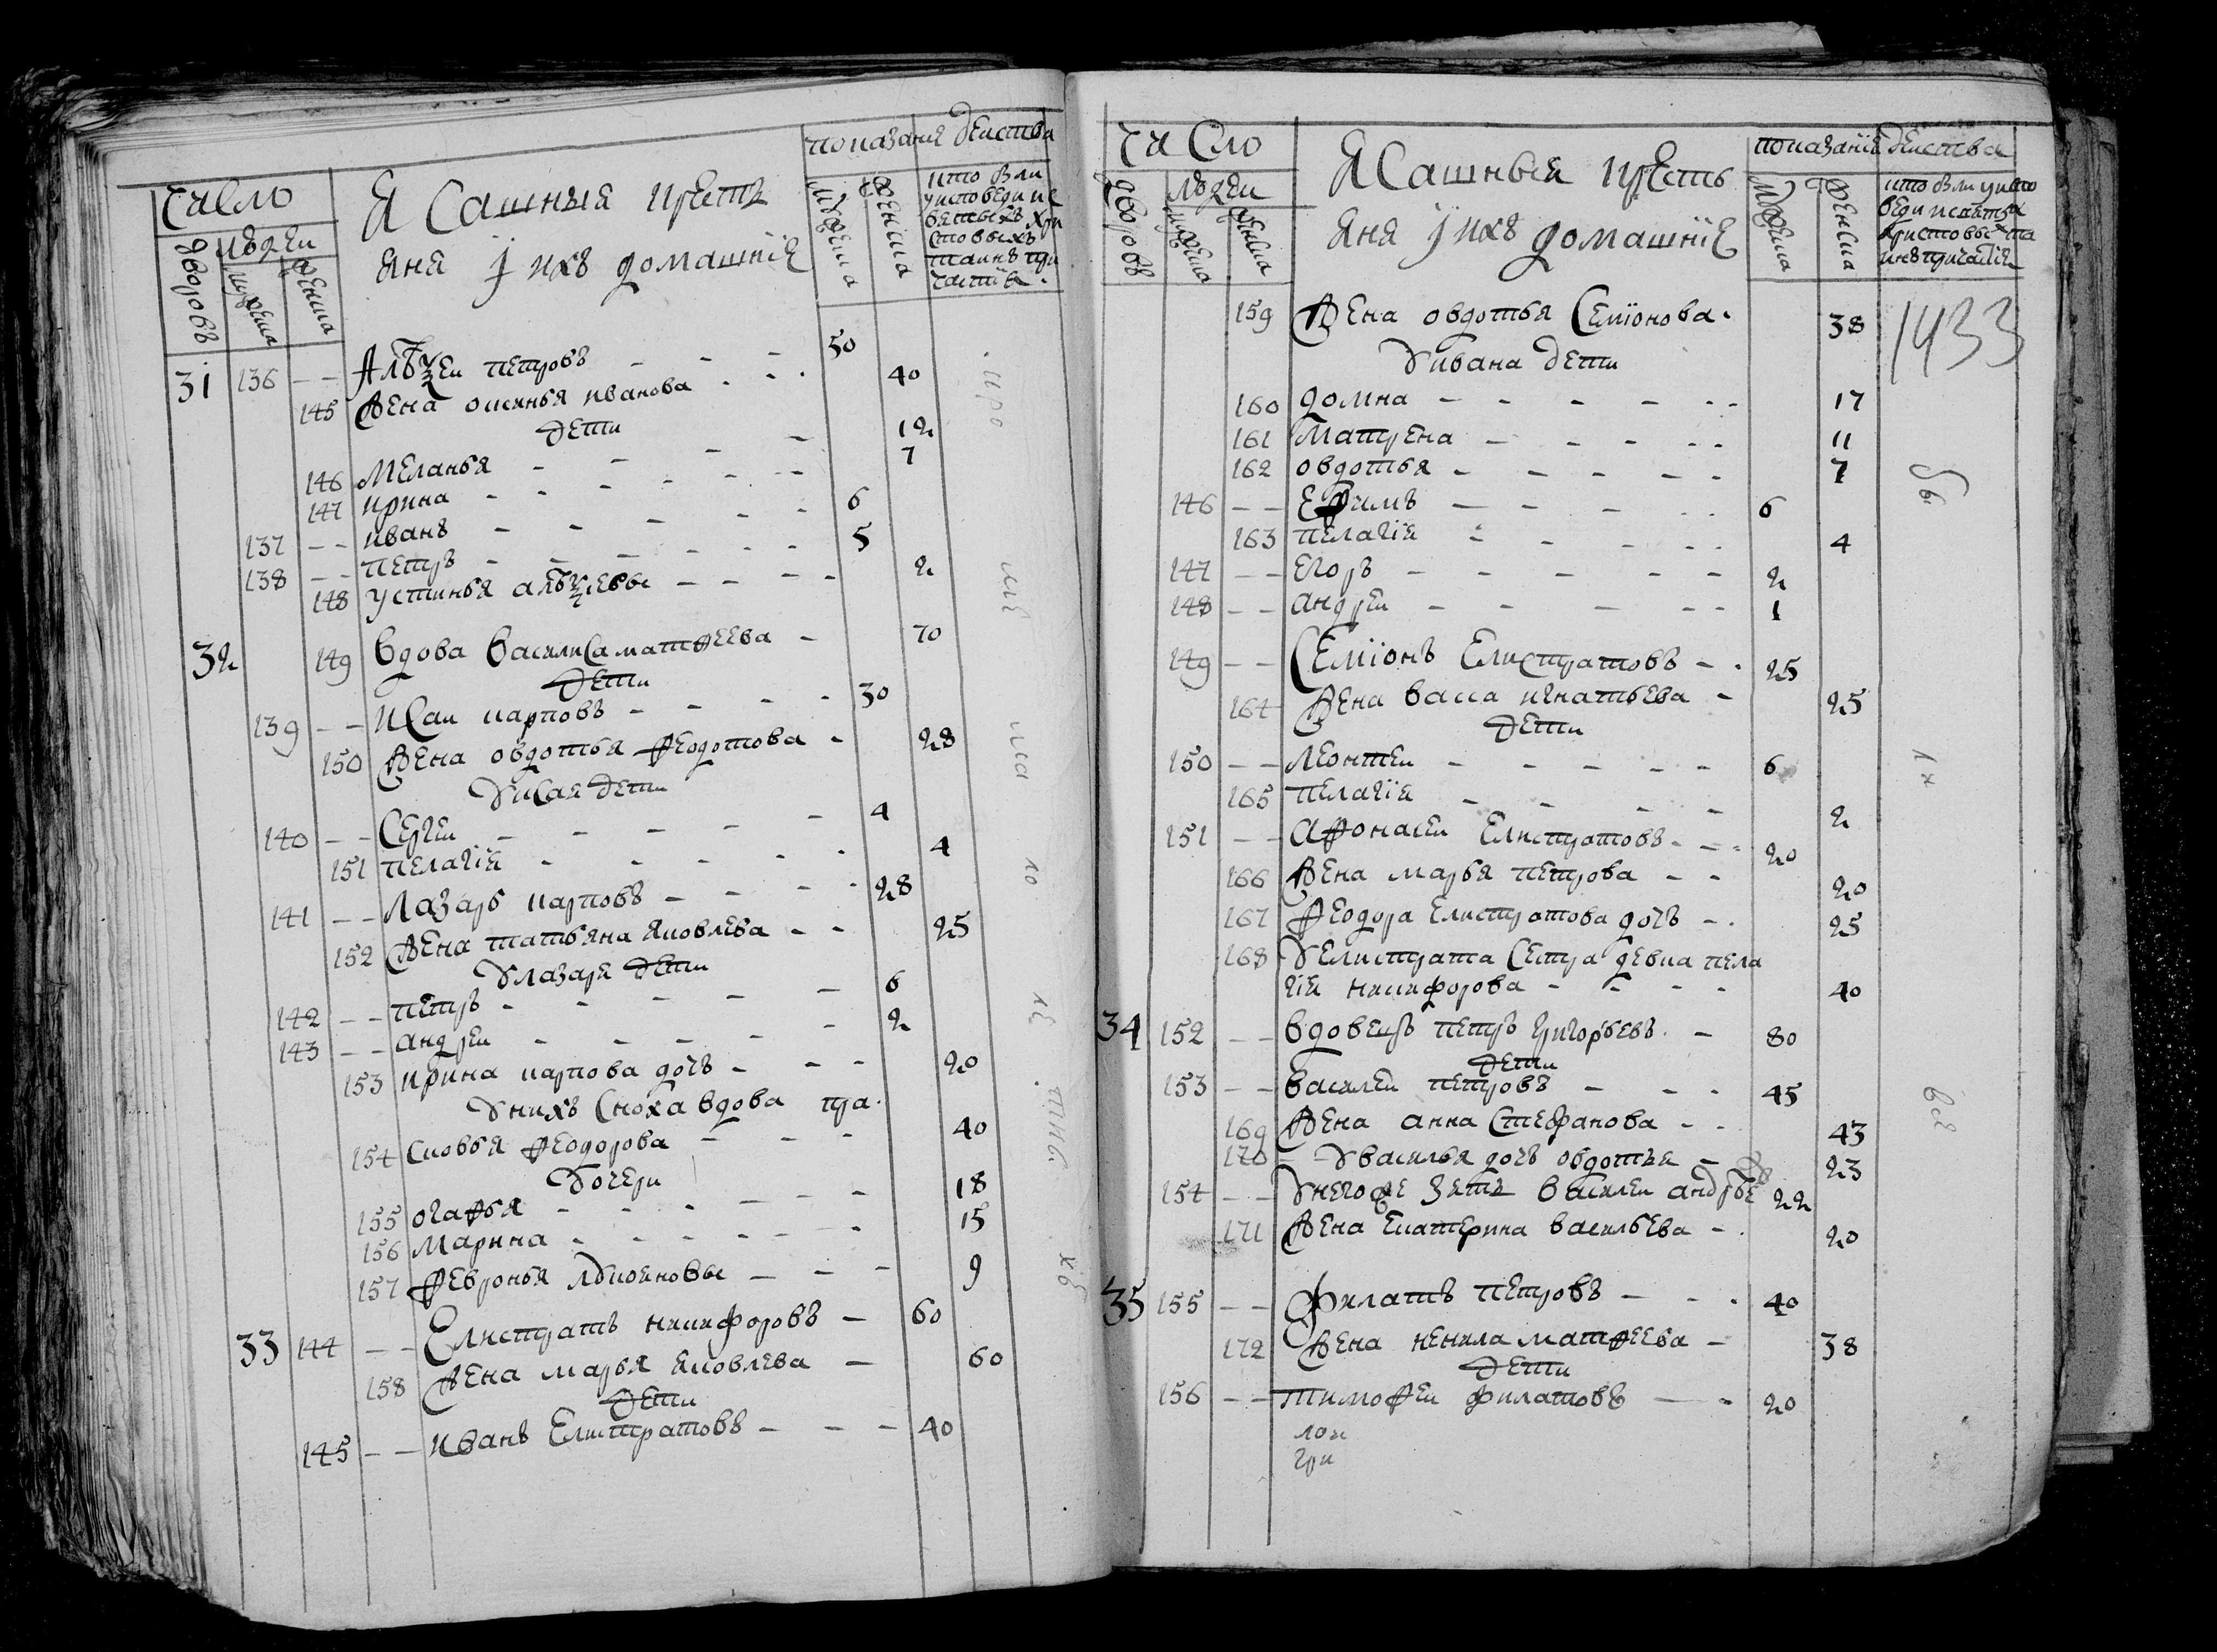 число
Ясашныя кресть
яня и ихъ домашніе
показаніе действа
дворовъ
людеи
мужеска
женска
мужеска
женска
кто были
у исповеди и с
вятыхъ хри
стовыхъ
таинъ при
частія.
31 136 -- Алѣѯеи петровъ - - - 50
145 Жена оксинья иванова - - - 40
дети
146 Меланья - - - - 12
147 ирина - - - - 7
137 -- иванъ - - - - 6
138 -- петръ - - - - 5
148 устинья алѣѯеевы - - - - 2
32 149 вдова василиса матфеева - 70
дети
139 -- Исаи карповъ - - - - 30
150 Жена овдотья феодотова - 28
У исая дети
140 -- Сергеи - - - - - 4
151 пелагія - - - - - 4
141 -- Лазарь карповъ - - - - 28
152 Жена татьяна яковлева - - 25
У лазаря дети
142 -- петръ - - - - - 6
143 -- андреи - - - - - 2
153 ирина карпова дочь - - - 20
У нихъ сноха вдова пра
154 сковья феодорова - - - 40
Дочери
155 огафья - - - - - 18
156 марина - - - - - - 15
157 февронья лукояновы - - - 9
33 144 -- Елистратъ никифоровъ - 60
158 Жена марья яковлева - 60
дети
145 -- иванъ Елистратовъ - - - 40
число
Ясашныя кресть
яня и ихъ домашніе
показаніе действа
дворовъ
людеи
мужеска
женска
мужеска
женска
кто были у испо
веди и святыхъ
христовыхъ та
инъ причастія
1433
159 Жена овдотья Семіонова. 38
У ивана дети
160 домна - - - - - - 17
161 матрена - - - - - 11
162 овдотья - - - - - 7
146 -- Ефимъ - - - - - 6
163 пелагія - - - - - 4
147 -- егоръ - - - - - 2
148 -- андреи - - - - - 1
149 -- Семіонъ Елистратовъ - - 25
164 Жена васса игнатьева - 25
дети
150 -- леонтеи - - - - - 6
165 пелагія - - - - 2
151 -- афонасеи Елистратовъ - - - 20
166 Жена марья петрова - - 20
167 феодора елистратова дочь - - 25
168 У елистрата сестра девка пела
гія никифорова - - - - 40
34 152 -- вдовецъ петръ григорьевъ - 80
дети
153 -- василеи петровъ - - - 45
169 Жена анна стефанова - - 43
170 - - У василья дочь овдотья - 23
154 -- У него же зять василеи андрѣе 22
171 Жена екатерина васильева - - 20
35 155 -- филатъ петровъ - - - 40
172 Жена ненила матфеева - 38
дети
156 -- тимофеи филатовъ - - 20